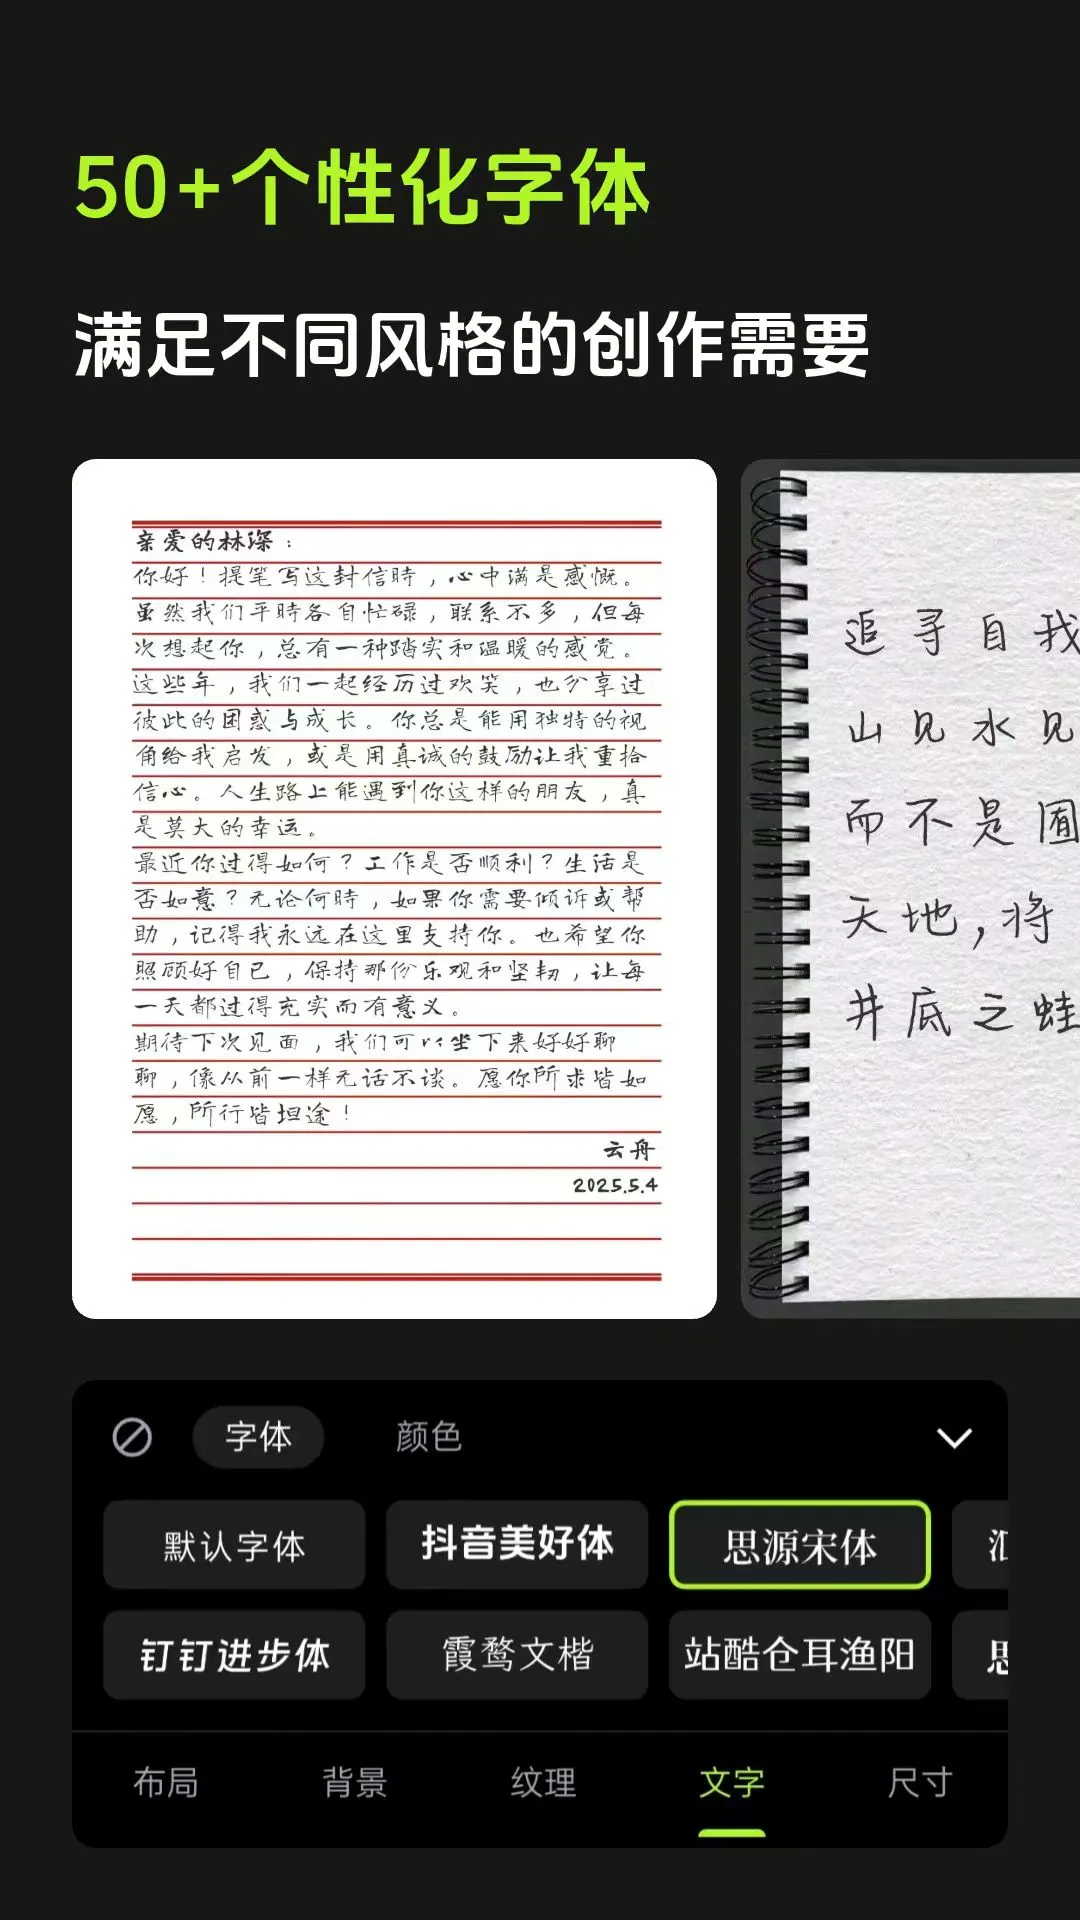 50+个性化字体
满足不同风格的创作需要
亲爱的林深：
你好！提笔写这封信時，心中满是感慨。
虽然我们平時各自忙碌，联系不多，但每
次想起你，总有一种踏实和温暖的感觉。
这些年，我们一起经历过欢笑，也分享过
彼此的困惑与成长。你总是能用独特的视
角给我启发，或是用真诚的鼓励让我重拾
信心。人生路上能遇到你这样的朋友，真
是莫大的幸运。
最近你过得如何？工作是否顺利？生活是
否如意？无论何時，如果你需要倾诉或帮
助，记得我永远在这里支持你。也希望你
照顾好自己，保持那份乐观和坚韧，让每
一天都过得充实而有意义。
期待下次见面，我们可以坐下来好好聊
聊，像从前一样无话不谈。愿你所求皆如
愿，所行皆坦途！
云舟
2025.5.4
追寻自我
山见水见
而不是囿
天地,将
井底之蛙
字体
颜色
默认字体
抖音美好体
思源宋体
钉钉进步体
霞鹜文楷
站酷仓耳渔阳
思
布局
背景
纹理
文字
尺寸